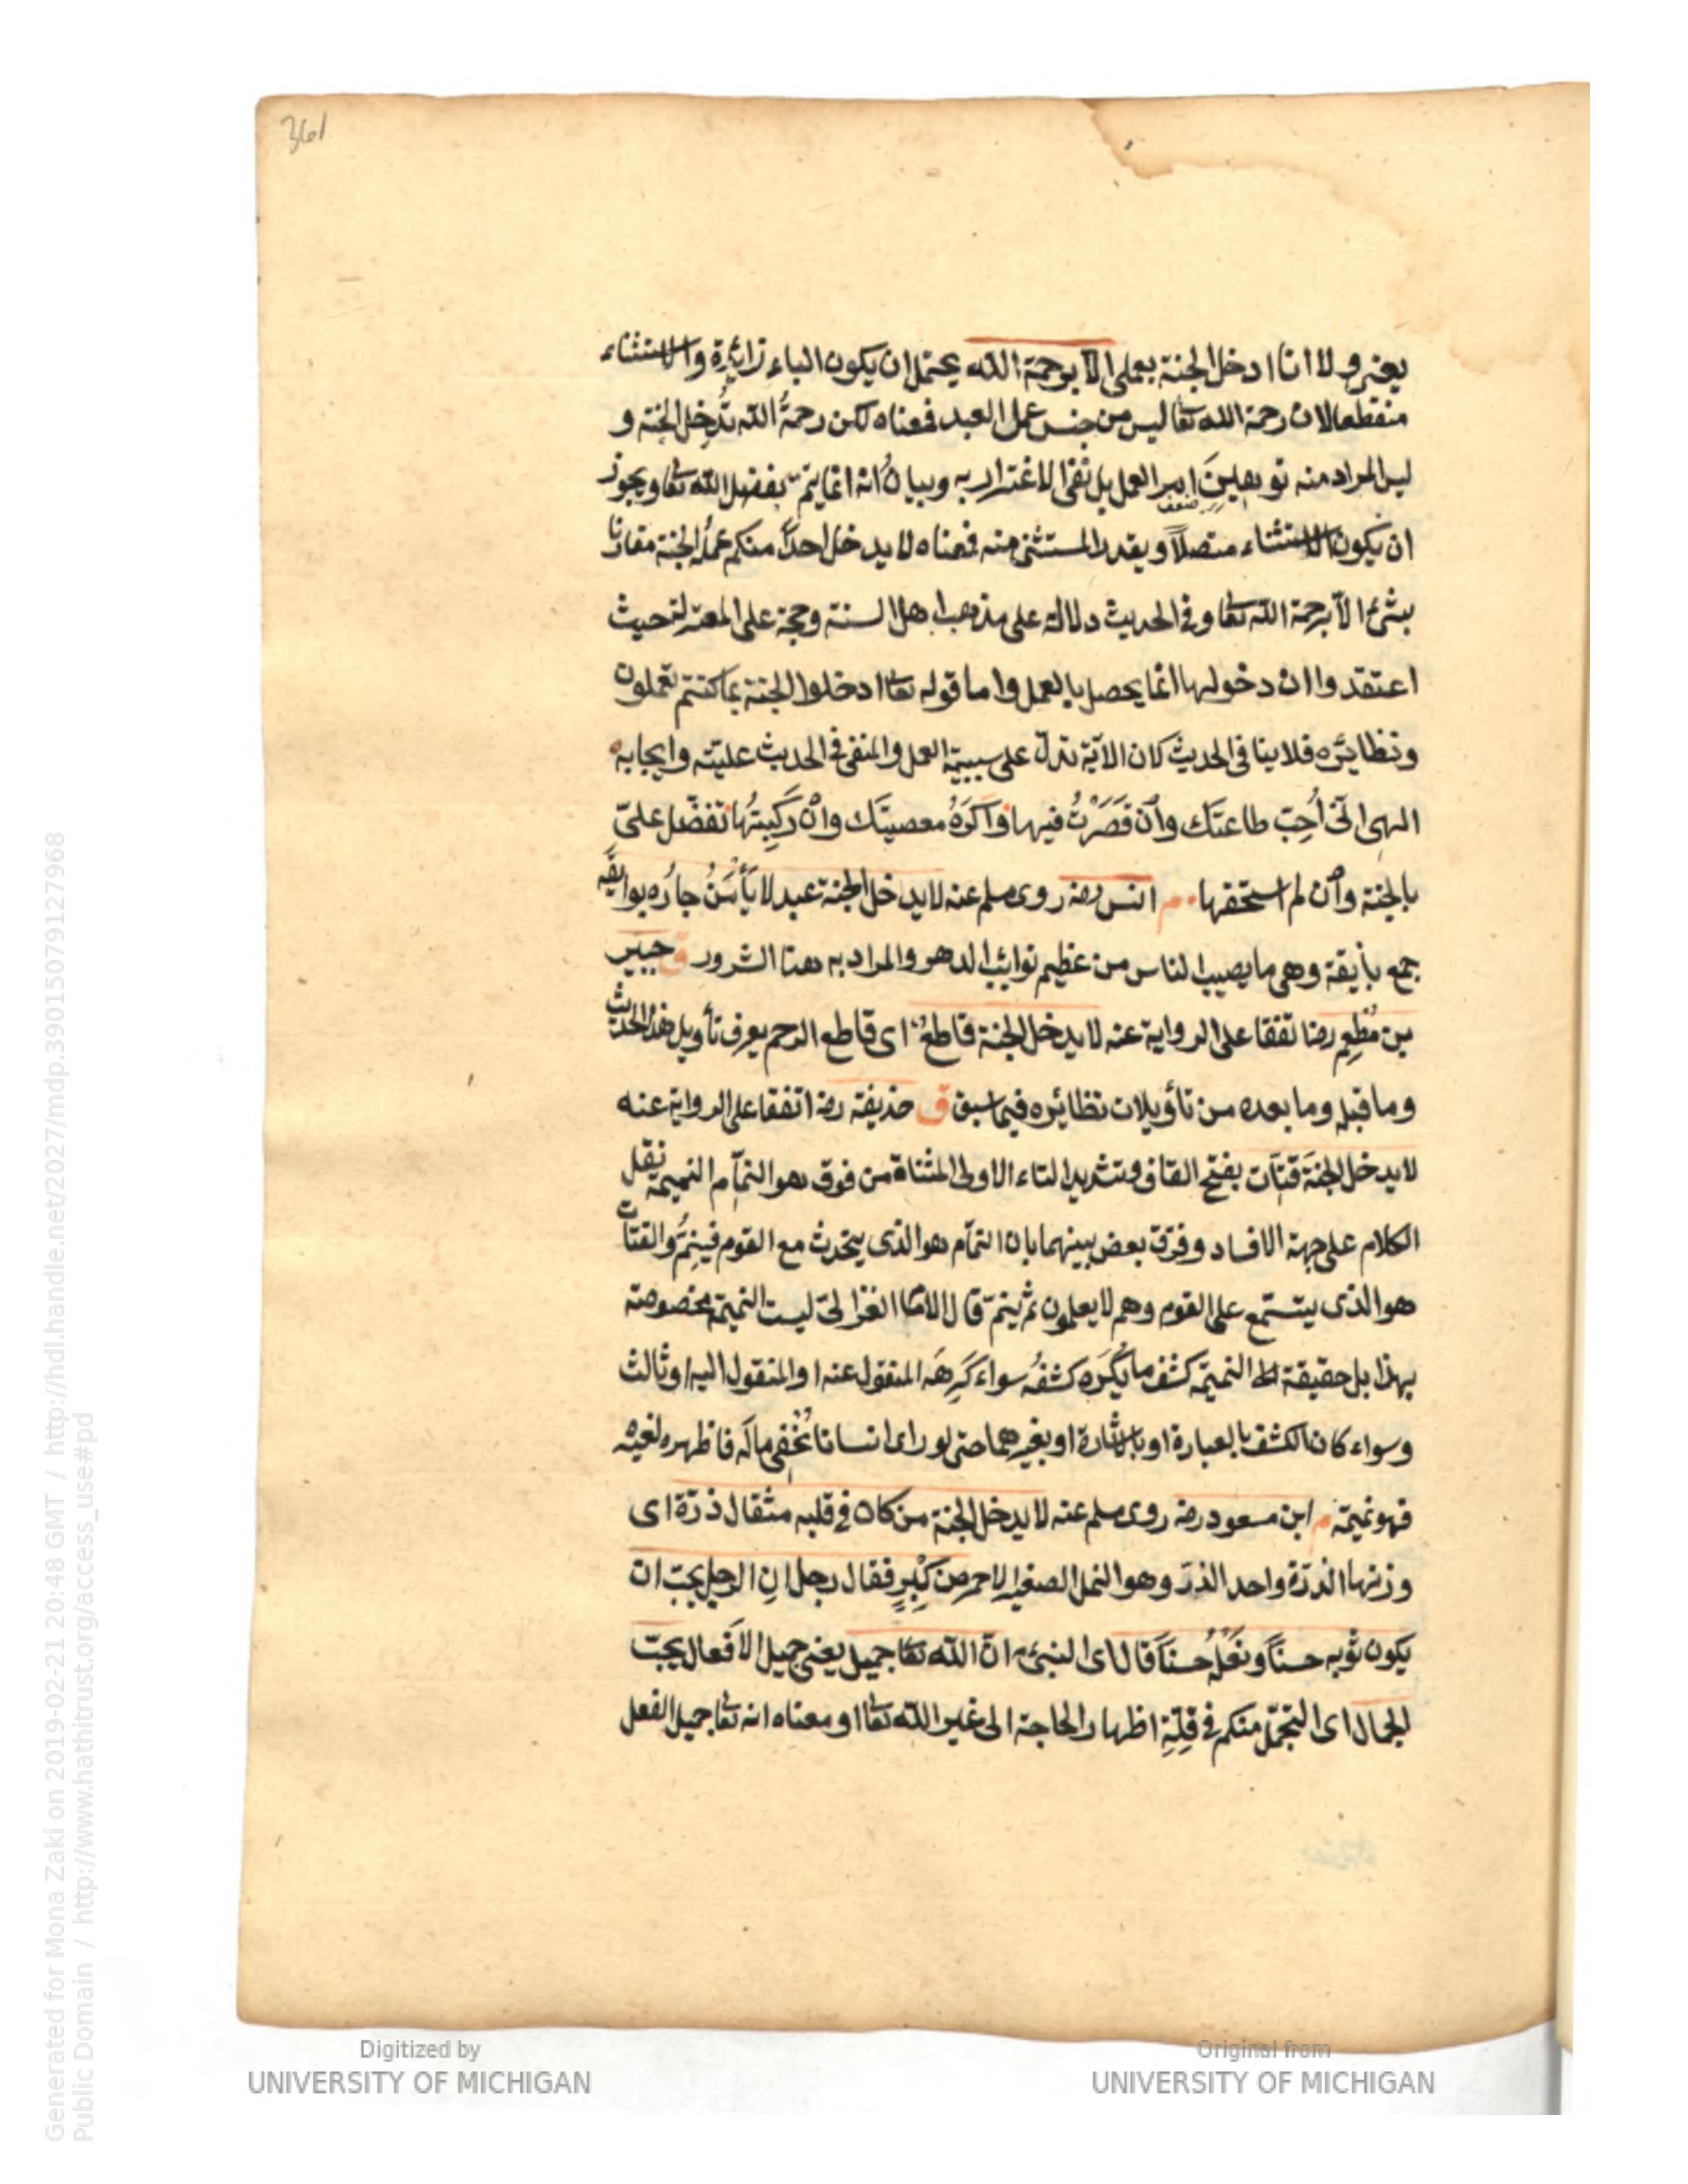 361
يعنى ولا انا ادخل الجنة بعملى الا برحمة الله يحتمل ان يكون الباء زائدة والاستثناء
منقطعا لان رحمة الله تعا ليس من جنس عمل العبد فمعناه لكن رحمةُ الله تُدخِل الجنة و
ليس المراد منه توهين امر العمل بل نفى الاغترار به وبيان انه انما يتم بفضل الله تعا ويجوز
ان يكون الاستثناء متصلاً ويقدر المستثنى منه فمعناه لا يدخل احداً منكم عملُه الجنة مقارنا
بشئ الا برحمة الله تعا وفى الحديث دلالة على مذهب اهل السنة وحجة على المعتزلة حيث
اعتقدوا ان دخولها انما يحصل بالعمل واما قوله تعا ادخلوا الجنة بما كنتم تعملون
ونظائره فلا ينافى الحديث لان الآية تدل على سببية العمل والمنفى فى الحديث عليته وايجابه
الهى انى اُحِبّ طاعتك وان قَصَرْتُ فيها واَكرَهُ معصيتك وان ركبتُها تفضّل علىّ
بالجنة وان لم استحقها م انس رضه روى مسلم عنه لا يدخل الجنة عبد لا يَأْمَنُ جارُه بوائقَه
جمع بايقة وهى ما يصيب الناس من عظيم نوائب الدهر والمراد به هنا الشرور ق جبير
بن مُطعِم رضا تفقا على الرواية عنه لا يدخل الجنة قاطعٌ اى قاطع الرحم يعرف تأويل هذا الحديث
وما قبله وما بعده من تأويلات نظائره فيما سبق ق حذيفة رضه اتفقا على الرواية عنه
لا يدخل الجنةَ قتّات بفتح القاف وتشديد التاء الاولى المثناة من فوق هو النمّام النميمة نقل
الكلام على جهة الافساد وفرّق بعض بينهما بان النمّام هو الذى يتحدث مع القوم فينِمُّ والقتات
هو الذى يستمع على القوم وهم لا يعلمون ثم ينمّ قال الاما الغزالىّ ليست النميمة مخصوصة
بهذا بل حقيقة النميمة كشف ما يُكرَه كشفُه سواء كَرِهَه المنقول عنه او المنقول اليه او ثالث
وسواء كان الكشف بالعبارة او بالاشارة او بغيرهما حتى لو راى انسانا يُخفى مالَه فاظهره لغيره
فهو نميمة م ابن مسعود رضه روى مسلم عنه لا يدخل الجنة من كان فى قلبه مثقال ذرّة اى
وزنها الذرّة واحد الذرّ وهو النمل الصغير الاحمر من كِبْرٍ فقال رجل ان الرجل يحبّ ان
يكون ثوبه حسنًا ونعلُه حسنًا قال اى النبىّ انّ الله تعا جميل يعنى جميل الافعال يحبّ
الجمال اى التجمّل منكم فى قِلّةِ اظهار الحاجة الى غير الله تعا او معناه انه تعا جميل الفعل
Digitized by
UNIVERSITY OF MICHIGAN
Original from
UNIVERSITY OF MICHIGAN
Generated for Mona Zaki on 2019-02-21 20:48 GMT / http://hdl.handle.net/2027/mdp.39015079127968
Public Domain / http://www.hathitrust.org/access_use#pd